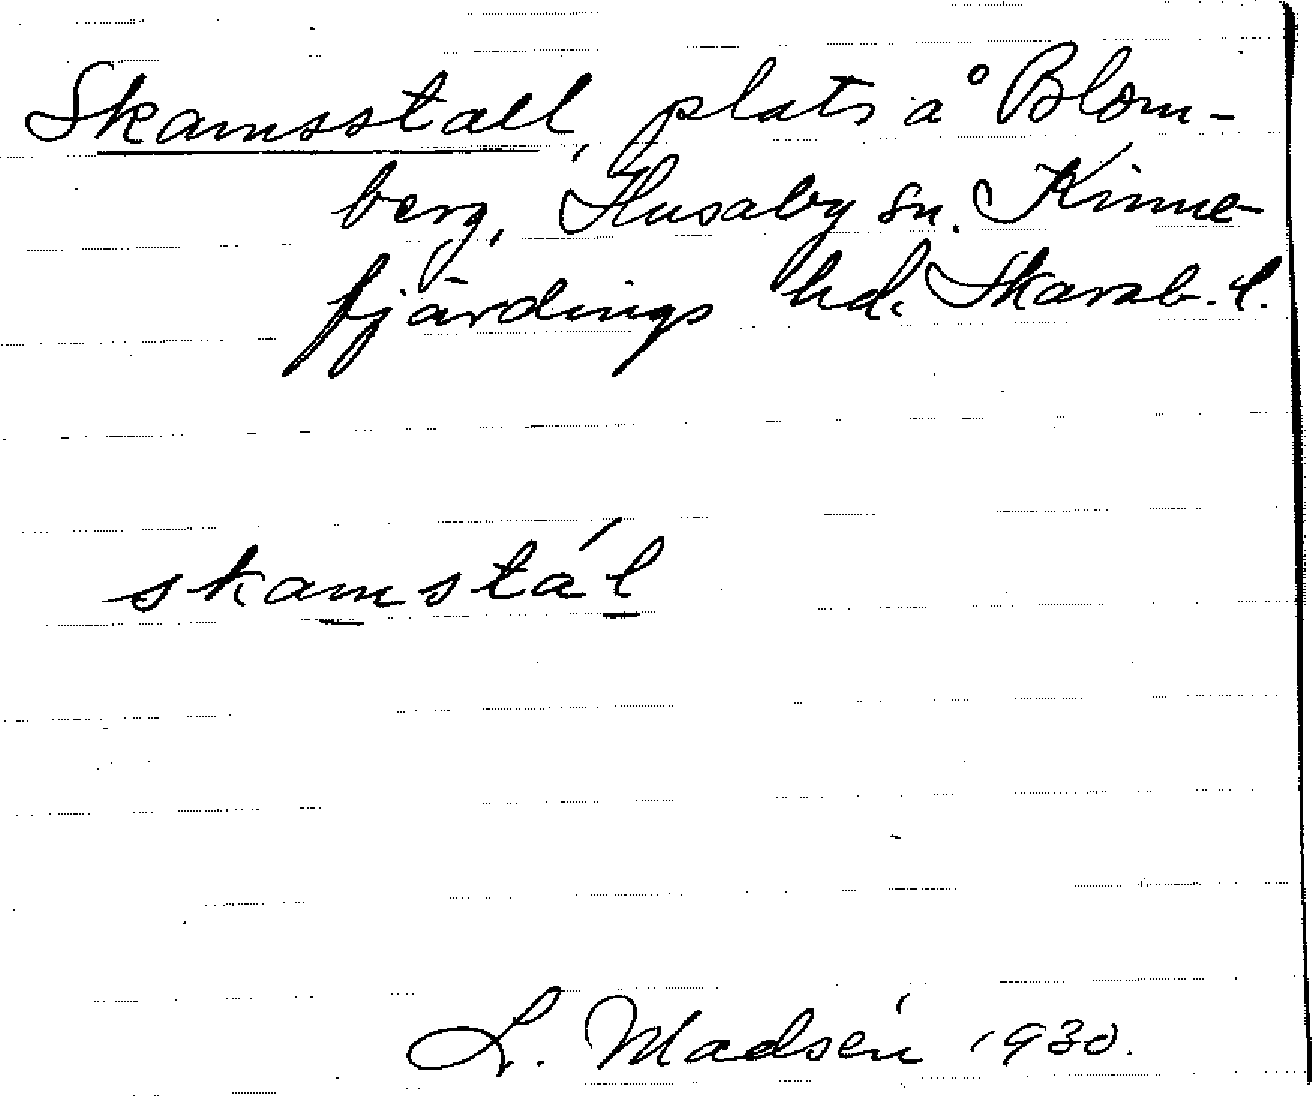 Skamsstall, plats å Blom-
berg, Husaby sn. Kinne-
fjärdings hd. Skarab. l.
skamstál
L. Madsén 1930.